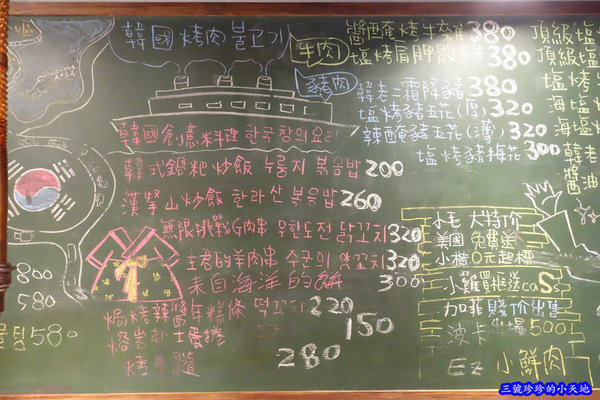 韓國烤肉 불고기
牛肉
醬醃烤牛 380
塩烤肩胛 380
豬肉
韓老二霜降豬 380
塩烤豬五花(厚) 320
辣醃豬五花(薄) 320
塩烤豬梅花 300
頂級塩
頂級
塩烤
海塩
海塩
韓老
醬油
韓國創意料理 한국창의요리
韓式鍋粑炒飯 누룽지 볶음밥 200
漢拏山炒飯 한라산 볶음밥 260
無限挑戰G肉串 무한도전 닭꼬치 320
主君的羊肉串 주군의 양꼬치 320
來自海洋的餅 300
焗烤辣醬年糕條 떡꼬치 220
熔岩起士蛋捲 150
烤牛髓 280
800
580
580
小毛 大特价
美國 免費送
小楷 0元起標
小蘿買框送coSs
加菲 賤价出售
波卡出場500
Ez 小鮮肉
三號珍珍的小天地